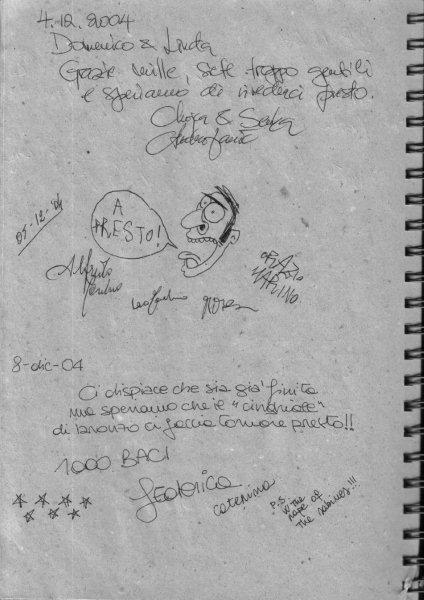 4.12.2004
Domenico & Linda
Grazie mille, siete troppo gentili
e speriamo di rivederci presto.
05-12-'04
A
PRESTO!
8-dic-04
Ci dispiace che sia già finita
ma speriamo che il "cinghiale"
di bronzo ci faccia tornare presto!!
1000 BACI
Federica
Caterina
P.S.
W the
rape of
the sabines!!!